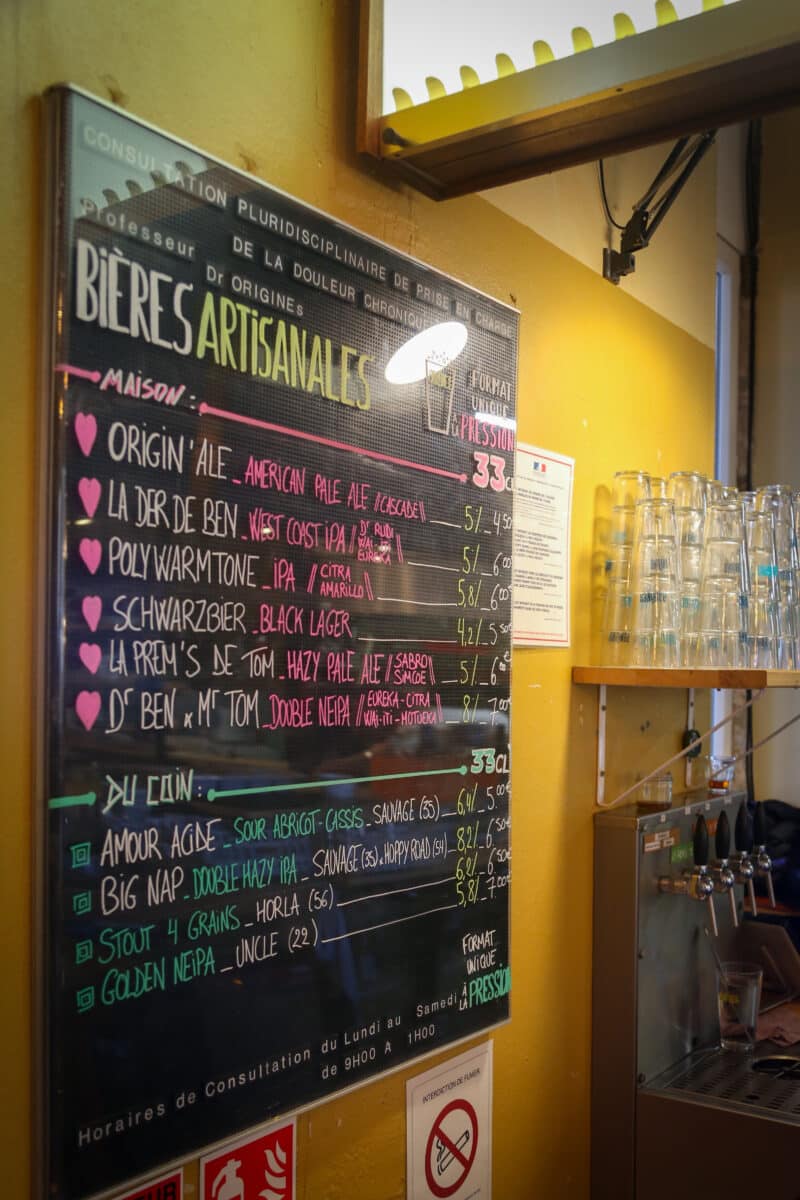 CONSULTATION PLURIDISCIPLINAIRE DE PRISE EN CHARGE
DE LA DOULEUR CHRONIQUE
Professeur Dr ORIGINEs
BIÈRES ARTISANALES
FORMAT
UNIQUE
À LA PRESSION
MAISON :
33CL
ORIGIN'ALE _ AMERICAN PALE ALE // CASCADE \\ 5% _ 4,50
LA DER DE BEN _ WEST COAST IPA // Dr RUDI WAI-ITI EUREKA \\ 5% _ 6,00
POLYWARMTONE _ IPA // CITRA AMARILLO \\ 5,8% _ 6,00
SCHWARZBIER _ BLACK LAGER 4,2% _ 5,50€
LA PREM'S DE TOM _ HAZY PALE ALE // SABRO SIMCOE \\ 5% _ 6,00€
Dr BEN & Mr TOM _ DOUBLE NEIPA // EUREKA - CITRA WAI-ITI - MOTUEKA \\ 8% _ 7,00€
DU COIN : 33CL
AMOUR ACIDE _ SOUR ABRICOT-CASSIS _ SAUVAGE (35) _ 6,4% _ 5,00€
BIG NAP _ DOUBLE HAZY IPA _ SAUVAGE (35) x HOPPY ROAD (54) _ 8,2% _ 6,50€
STOUT 4 GRAINS _ HORLA (56) 6,8% _ 6,50€
GOLDEN NEIPA _ UNCLE (22) 5,8% _ 7,00€
FORMAT
UNIQUE
À LA PRESSION
Horaires de Consultation du Lundi au Samedi
de 9H00 A 1H00
INTERDICTION DE FUMER